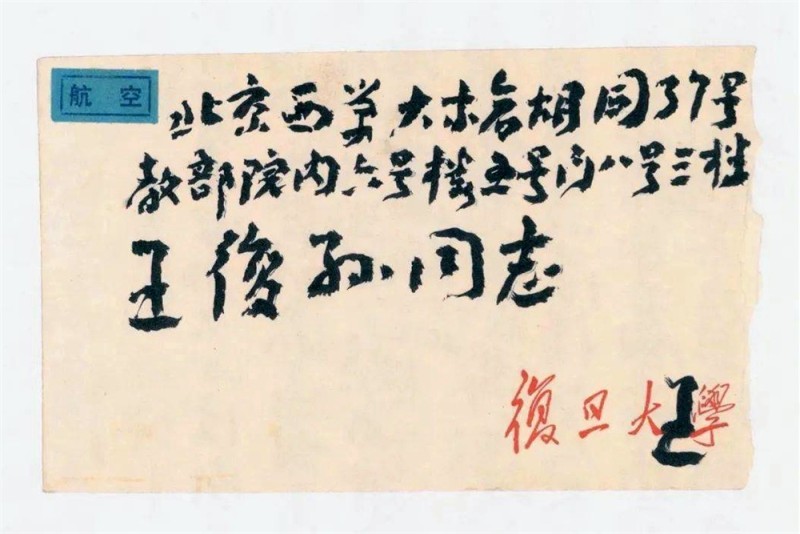 航空
北京西单大木仓胡同37号
教部院内六号楼五号门八号三楼
王復孙同志
復旦大學
王